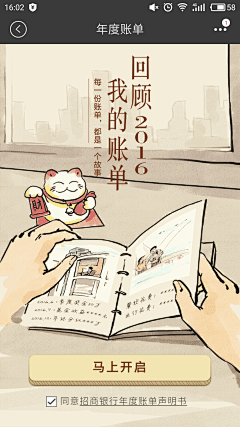 16:02
58
年度账单
1
回顾2016
我的账单
每一份账单，都是一个故事
财
马上开启
同意招商银行年度账单声明书